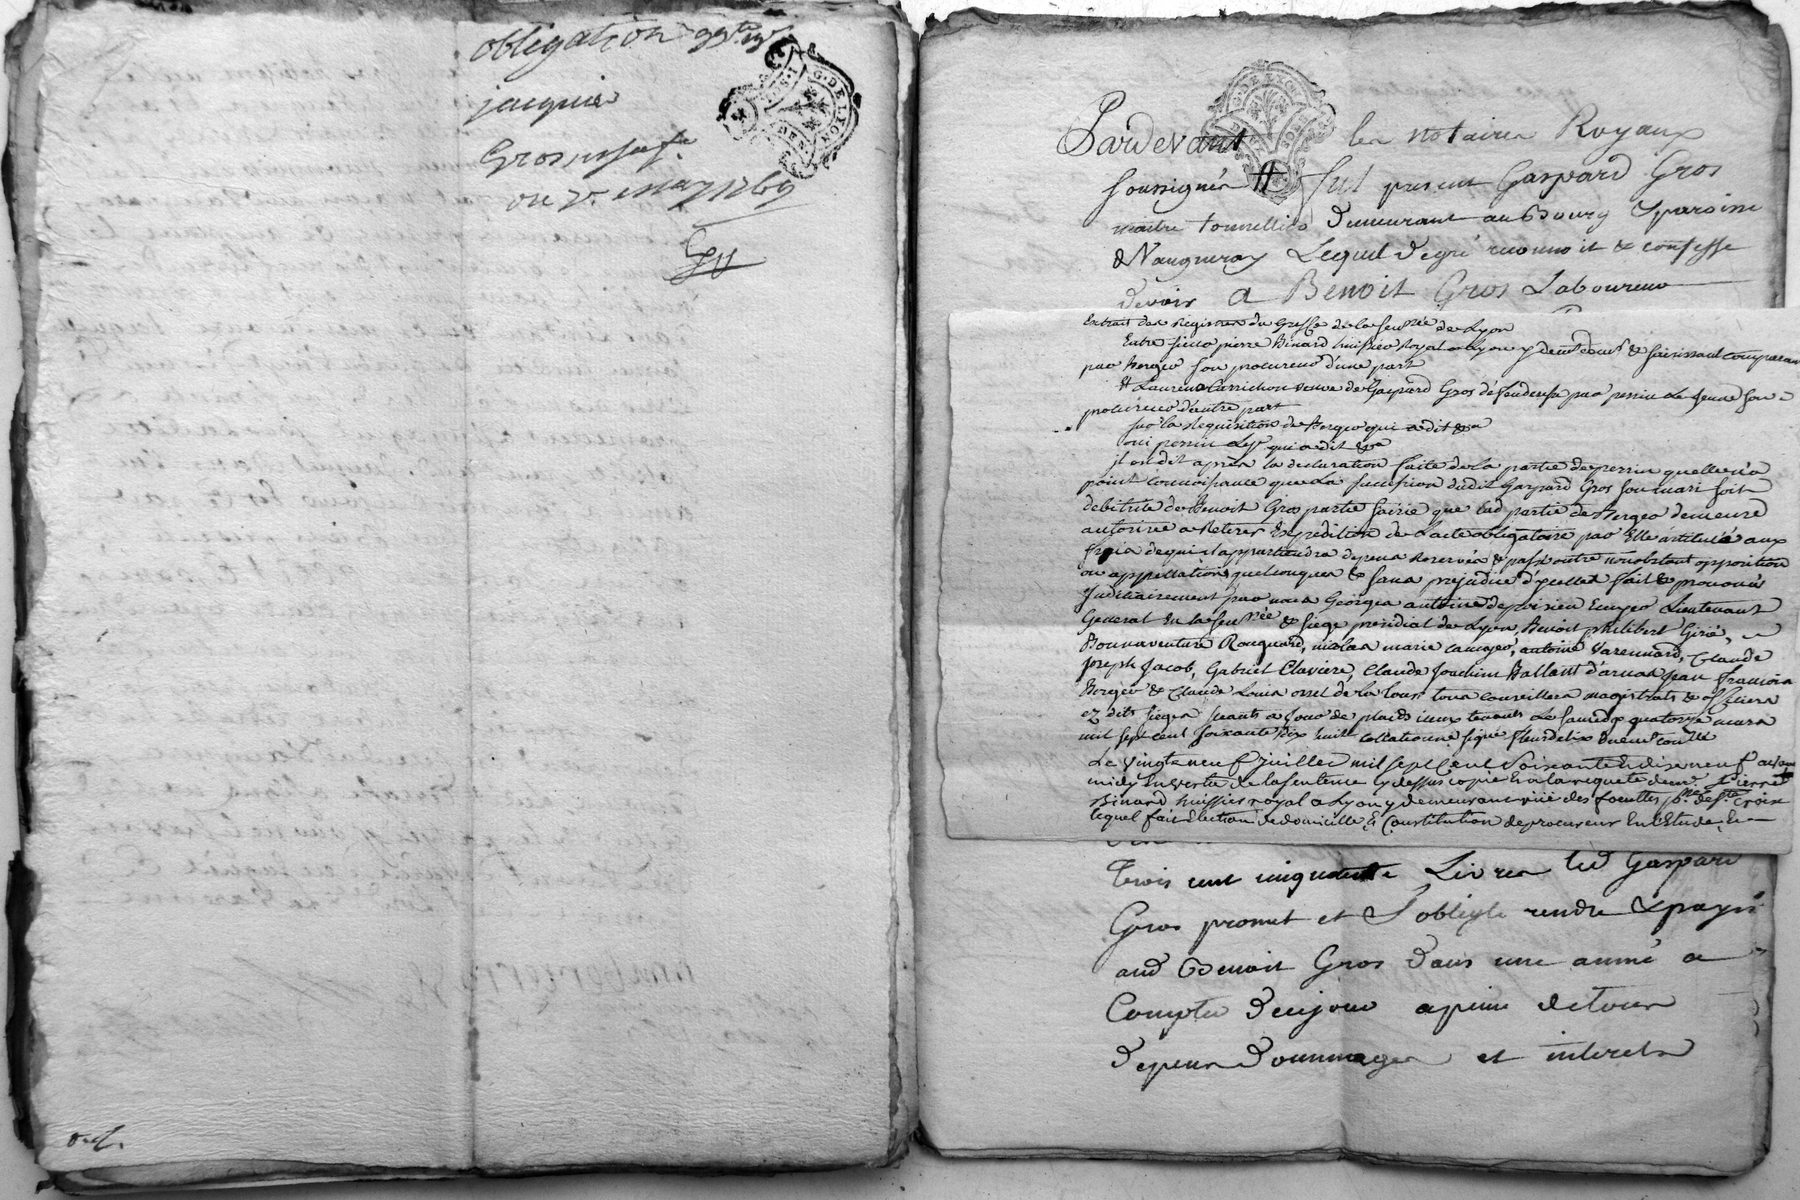 obligation
jacquier
Gros
du 2e may 1769
G. DE LYON
Pardevant les notaires Royaux
soussignés fut present Gaspard Gros
maitre tonnellier demeurant au Bourg & paroisse
de Vaugneray Lequel de gré reconnoit & confesse
devoir a Benoit Gros Laboureur
Extrait des Registres du Greffe de la senrée de Lyon
Entre sieur pierre Binard huissier Royal a Lyon y demt & saisissant comparant
par Berger son procureur d'une part
& Laurence veuve de Gaspard Gros défenderesse par perrin Le Jeune son
procureur d'autre part
sur la Requisition de Berger qui a dit &a
oui perrin Le je qui a dit &a
il est dit après la déclaration faite de la partie de perrin quelle n'a
point connoissance que La succession dudit Gaspard Gros son mari soit
debitrite de Benoit Gros partie saisie que lad partie de Berger demeure
autorisée a Retirer Expedition de L'acte obligatoire par Elle articulé aux
frais de qui il appartiendra depens Reservés & passé outre nonobstant opposition
ou appellations quelconques & sans prejudice d'icelles fait & prononcé
Judiciairement par nous Georges antoine Lieutenant
General En la senrée & siege presidial de Lyon, Benoit philibert
Bonnaventure Rouquard, nicolas marie antoine Varennard, Claude
Joseph Jacob, Gabriel Claviere, Claude Joachim Ballant d'arnas Jean francois
Berger & Claude Louis orsel de la tour tous conseillers magistrats & officiers
ez dits sieges seants a jour de plaids iceux tenants Le samedy quatorze mars
mil sept cent soixante dix huit collationné signé fleurdelix
Le vingt neuf juillet mil sept Cent Soixante Et dix neuf avant
midy En vertu de la sentence y dessus copie Et a la requete de mr pierre
Binard huissier royal a Lyon y demeurant rüe des fouettes psse de ste Croix
lequel fait Election de domicille & Constitution de procureur En l'Etude Et
trois cent cinquante Livres led Gaspard
Gros promet et s'oblige rendre & payer
aud Benoit Gros dans une année a
Compter de ce jour a peine de tous
depens dommages et interets